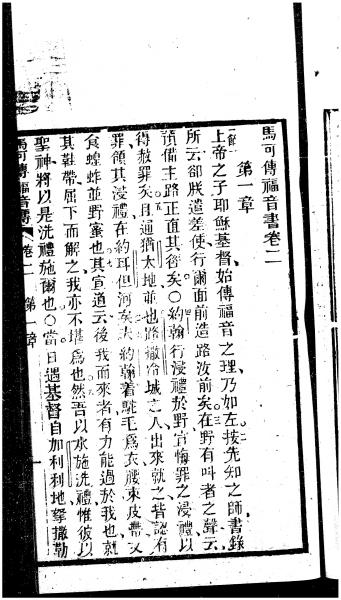 馬可傳福音書卷二
第一章
上帝之子耶穌基督始傳福音之理乃如左按先知之師書錄
所云卻朕遣差使行爾面前造路汝前矣在野有呌者之聲云
預備主路正直其徑矣○約翰行浸禮於野宣悔罪之浸禮以
得赦罪矣且通猶太地並也路撒冷城之人出來就之皆認有
罪領其浸禮在約耳但河矣夫約翰着駝毛為衣腰束皮帶又
食蝗蚱並野蜜也其宣道云後我而來者有力能過於我也就
其鞋帶屈下而解之我亦不堪為也然吾以水施洗禮惟彼以
聖神將以是洗禮施爾也○當日遇基督自加利利地拏撒勒
馬可傳福音書 卷二 第一章